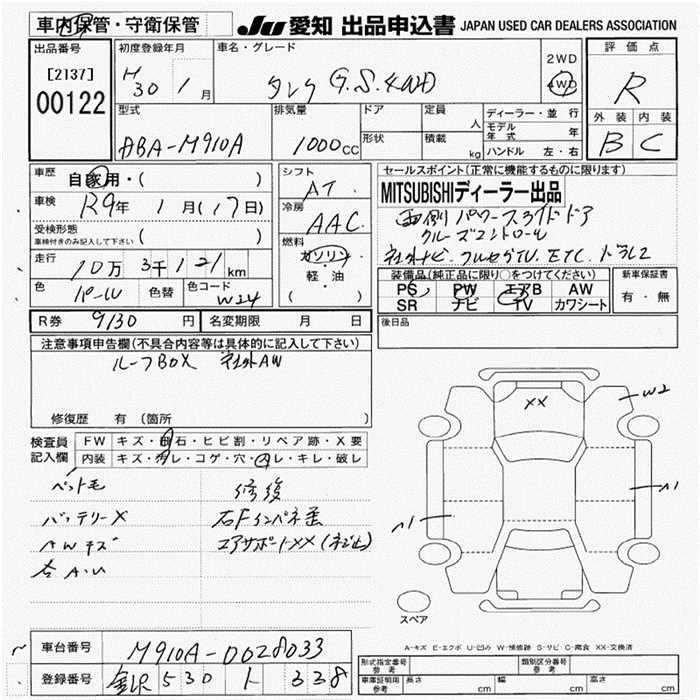 車内保管・守衛保管
JU 愛知 出品申込書 JAPAN USED CAR DEALERS ASSOCIATION
出品番号
[2137]
00122
初度登録年月
H30年 1月
車名・グレード
タンク G.S 4WD
2WD
4WD
評価点
R
外装 内装
B C
型式
ABA-M910A
排気量
1000cc
ドア
形状
定員 人
積載 kg
ディーラー・並行
モデル年式 年
ハンドル 左・右
車歴
自家用・( )
車検
R9年 1月(17日)
受検形態
車検付きのみ記入して下さい ( )
走行
10万 3千 121km
色
パール
色替
色コード
W24
シフト
AT
冷房
AAC
燃料
ガソリン
軽・油
( )
セールスポイント(正常に機能するものに限ります)
MITSUBISHIディーラー出品
両側パワースライドドア
クルーズコントロール
社外ナビ. フルセグTV. ETC. ドラレコ
装備品(純正品に限り○をつけてください)
PS PW エアB AW
SR ナビ TV カワシート
新車保証書
有・無
R券 9130円
名変期限 月 日
後日品
注意事項申告欄(不具合内容等は具体的に記入して下さい)
ルーフBOX 社外AW
修復歴 有 (箇所 )
検査員記入欄
FW キズ・飛石・ヒビ割・リペア跡・X要
内装 キズ・汚レ・コゲ・穴・スレ・キレ・破レ
ペット毛
バッテリーX
AWキズ
修復
右Fインパネ歪
エアサポートXX(ネジ山)
XX
W2
A1
A1
スペア
A-キズ E-エクボ U-凹み W-補修跡 S-サビ C-腐食 XX-交換済
車台番号
M910A-0028033
登録番号
530 ト 338
形式指定番号 参考
類別区分番号 参考
車庫証明用 参考
長さ cm 幅 cm 高さ cm